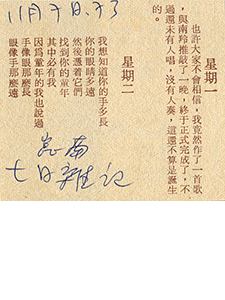 11月7日.73
星期一
也許大家不會相信，我竟然作了一首歌
，與南玲推敲了一晚，終于正式完成了，不
過還未有人唱，沒有人奏，這還不算是誕生
的。
星期二
我想知道你的手多長
你的眼睛多遠
然後憑着它們
找到你的童年
其中必有我
因爲童年的我也說過
手像眼那麽長
眼像手那麽遠
七日雜記